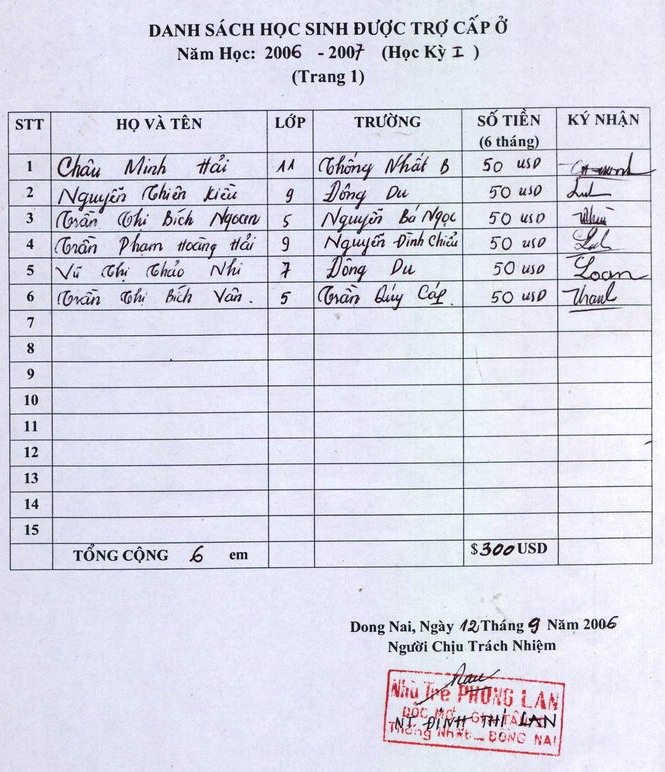 DANH SÁCH HỌC SINH ĐƯỢC TRỢ CẤP Ở
Năm Học: 2006 - 2007 (Học Kỳ I )
(Trang 1)
STT HỌ VÀ TÊN LỚP TRƯỜNG SỐ TIỀN (6 tháng) KÝ NHẬN
1 Châu Minh Hải 11 Thống Nhất B 50 USD
2 Nguyễn Thiên Kiều 9 Đông Du 50 USD
3 Trần Thị Bích Ngoan 5 Nguyễn Bá Ngọc 50 USD
4 Trần Phạm Hoàng Hải 9 Nguyễn Đình Chiểu 50 USD
5 Vũ Thị Thảo Nhi 7 Đông Du 50 USD Loan
6 Trần Thị Bích Vân. 5 Trần Qúy Cáp. 50 USD
7
8
9
10
11
12
13
14
15
TỔNG CỘNG 6 em $300 USD
Dong Nai, Ngày 12 Tháng 9 Năm 2006
Người Chịu Trách Nhiệm
Nhà Trẻ PHONG LAN
DỐC MƠ - GIA TÂN
NT. ĐINH THỊ LAN
Thống Nhất - ĐỒNG NAI